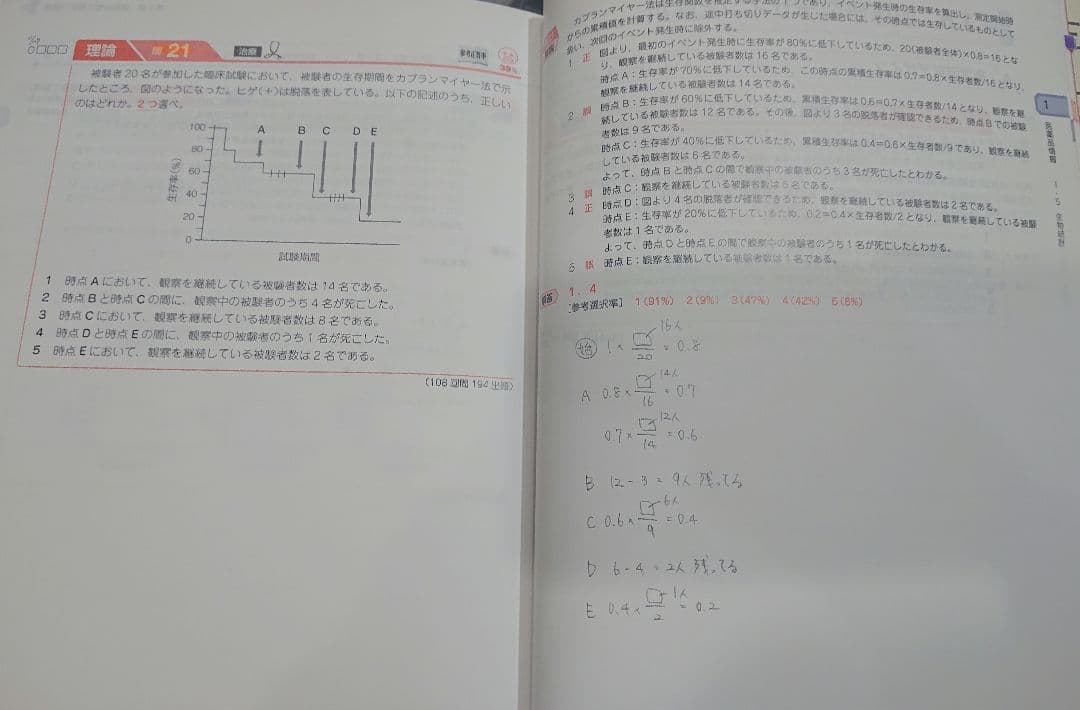 理論 問 21 治療
参考正答率
39%
被験者20名が参加した臨床試験において、被験者の生存期間をカプランマイヤー法で示
したところ、図のようになった。ヒゲ(+)は脱落を表している。以下の記述のうち、正しい
のはどれか。2つ選べ。
A B C D E
100
80
60
40
20
0
生存率(%)
試験期間
1 時点Aにおいて、観察を継続している被験者数は14名である。
2 時点Bと時点Cの間に、観察中の被験者のうち4名が死亡した。
3 時点Cにおいて、観察を継続している被験者数は8名である。
4 時点Dと時点Eの間に、観察中の被験者のうち1名が死亡した。
5 時点Eにおいて、観察を継続している被験者数は2名である。
(108回問194出題)
カプランマイヤー法は生存関数を推定する手法の1つであり、イベント発生時の生存率を算出し、測定開始時
からの累積値を計算する。なお、途中打ち切りデータが生じた場合には、その時点では生存しているものとして
扱い、次回のイベント発生時に除外する。
1 正 図より、最初のイベント発生時に生存率が80%に低下しているため、20(被験者全体)×0.8=16とな
り、観察を継続している被験者数は16名である。
時点A:生存率が70%に低下しているため、この時点の累積生存率は0.7=0.8×生存者数/16となり、
観察を継続している被験者数は14名である。
2 誤 時点B:生存率が60%に低下しているため、累積生存率は0.6=0.7×生存者数/14となり、観察を継
続している被験者数は12名である。その後、図より3名の脱落者が確認できるため、時点Bでの被験
者数は9名である。
時点C:生存率が40%に低下しているため、累積生存率は0.4=0.6×生存者数/9であり、観察を継続
している被験者数は6名である。
よって、時点Bと時点Cの間で観察中の被験者のうち3名が死亡したとわかる。
3 誤 時点C:観察を継続している被験者数は6名である。
4 正 時点D:図より4名の脱落者が確認できるため、観察を継続している被験者数は2名である。
時点E:生存率が20%に低下しているため、0.2=0.4×生存者数/2となり、観察を継続している被験
者数は1名である。
よって、時点Dと時点Eの間で観察中の被験者のうち1名が死亡したとわかる。
5 誤 時点E:観察を継続している被験者数は1名である。
解答 1、4
[参考選択率] 1(91%) 2(9%) 3(47%) 4(42%) 5(8%)
1
医薬品情報
1-5 生物統計
始 1 × □/20 = 0.8 16人
A 0.8 × □/16 = 0.7 14人
0.7 × □/14 = 0.6 12人
B 12 - 3 = 9人 残ってる
C 0.6 × □/9 = 0.4 6人
D 6 - 4 = 2人 残ってる
E 0.4 × □/2 = 0.2 1人